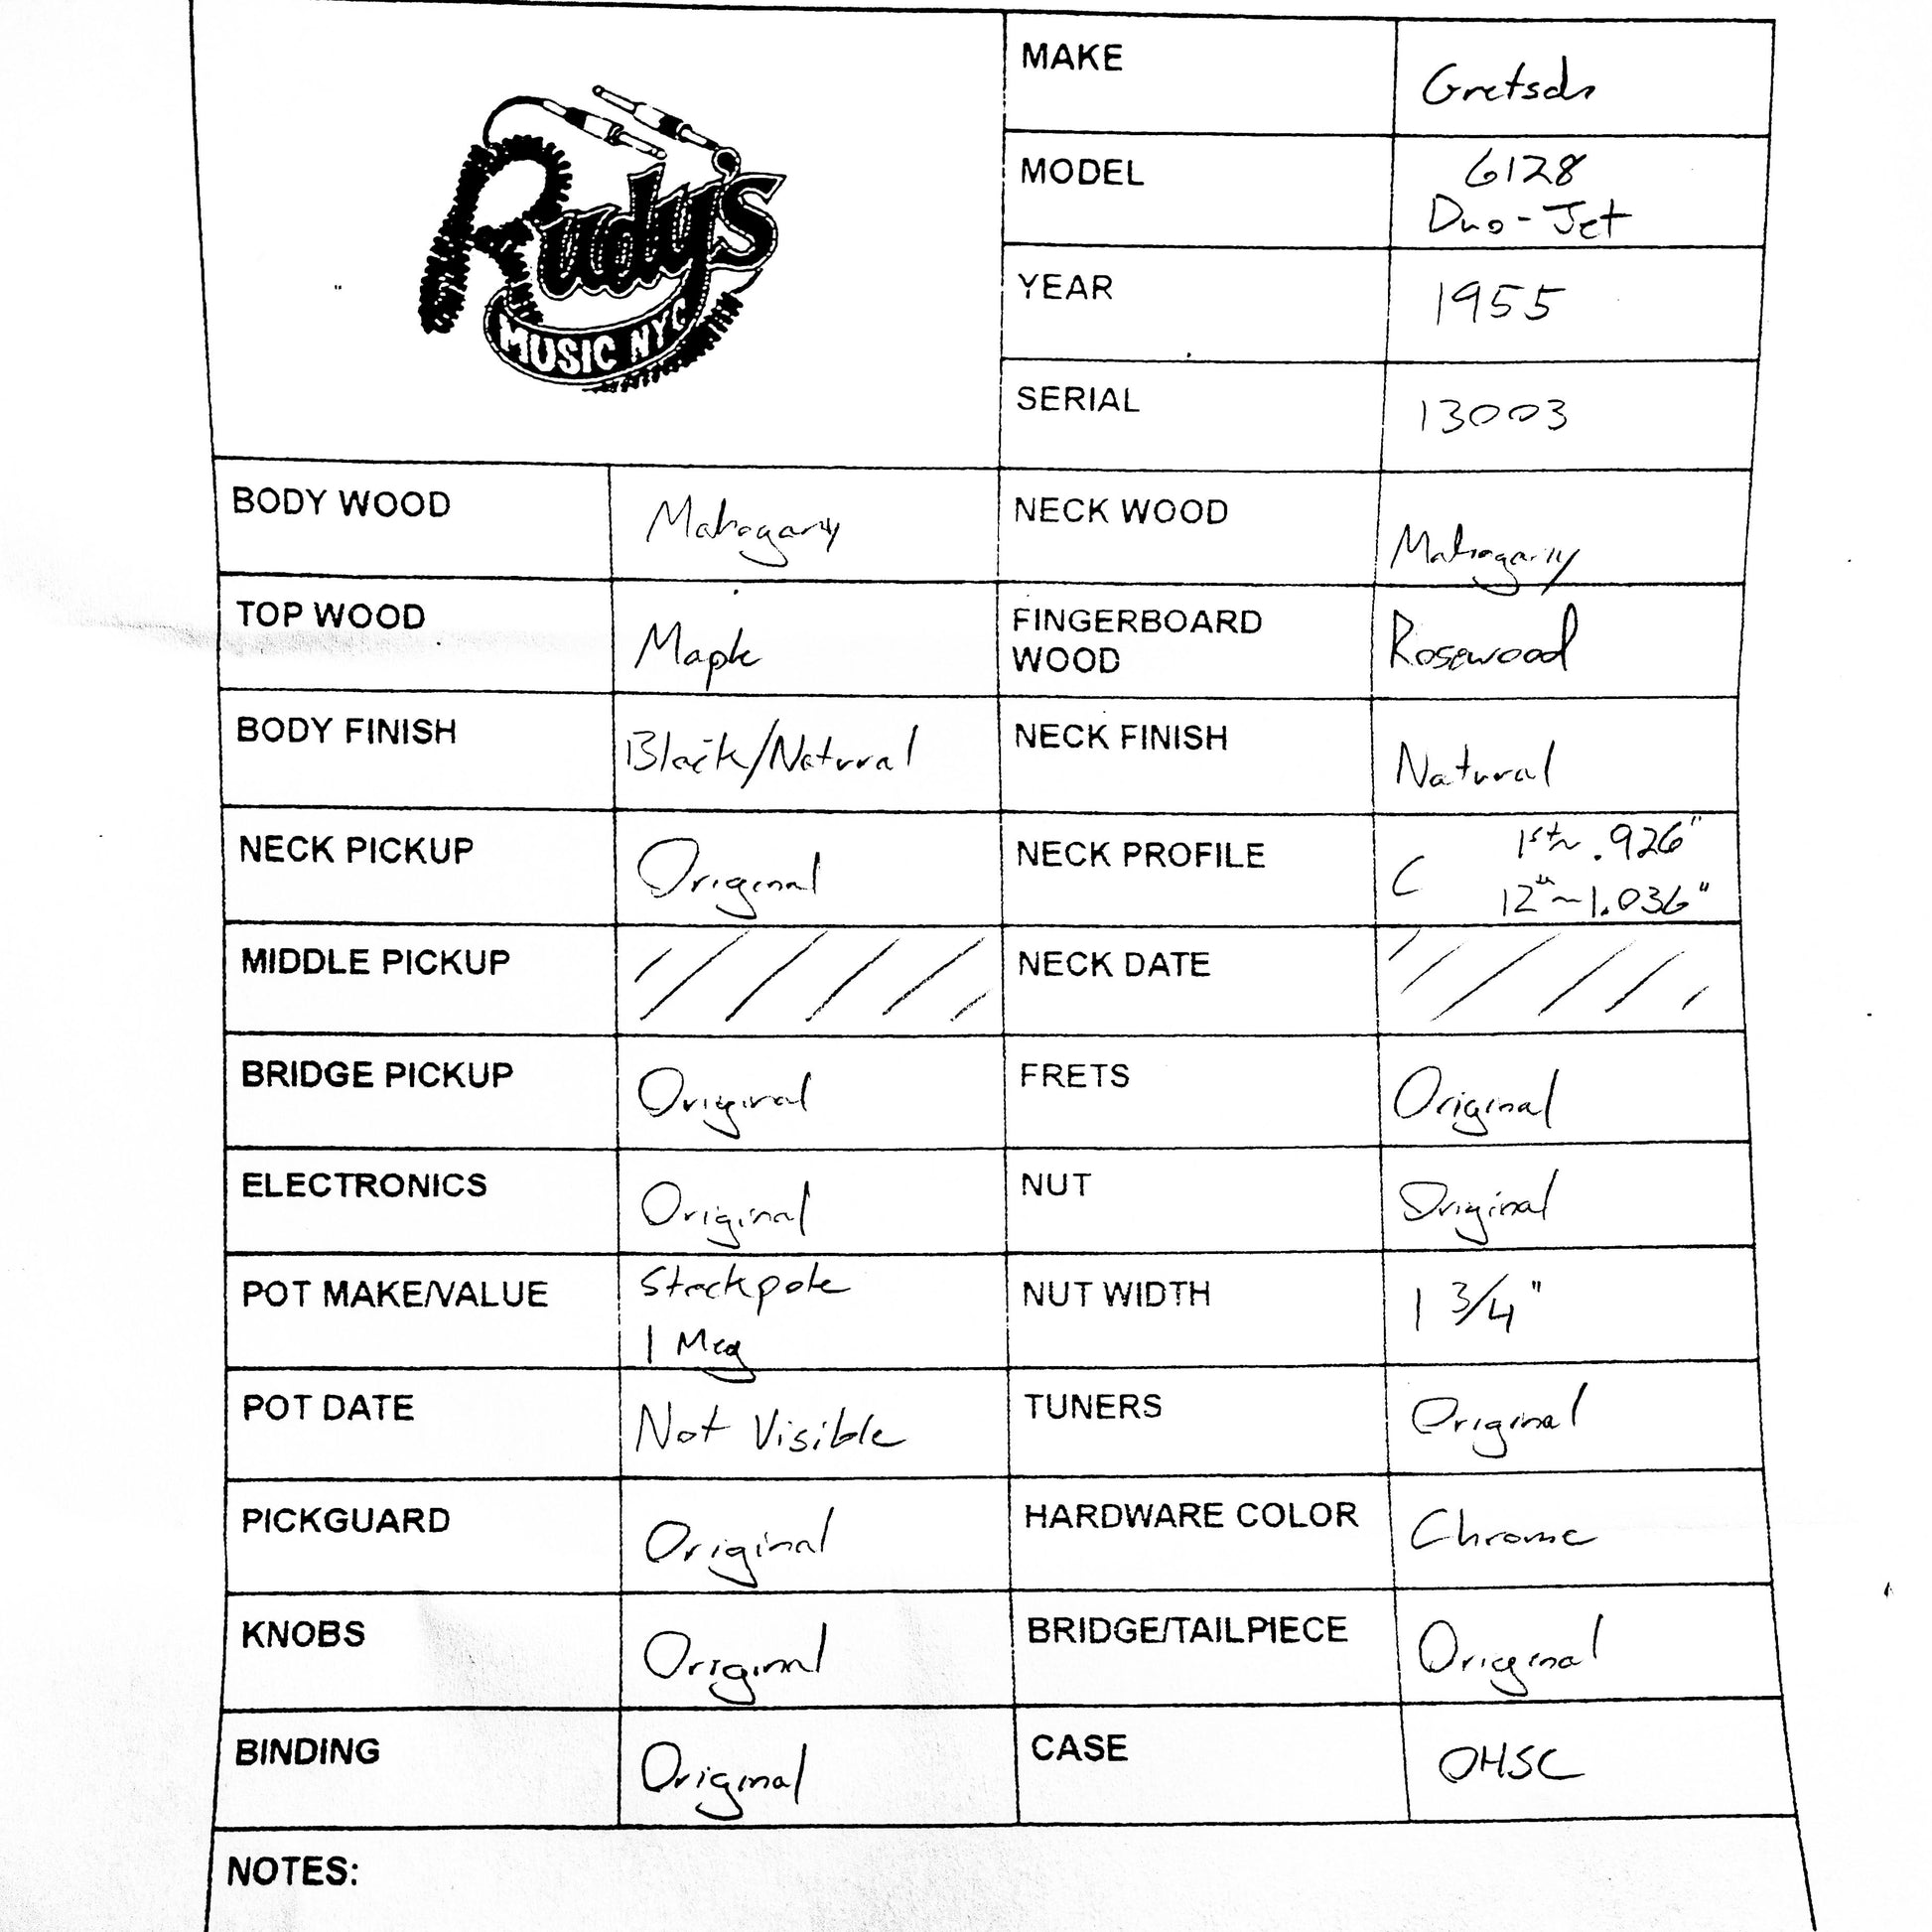 Rudys
MUSIC NYC
MAKE Gretsch
MODEL 6128
Duo-Jet
YEAR 1955
SERIAL 13003
BODY WOOD Mahogany NECK WOOD Mahogany
TOP WOOD Maple FINGERBOARD
WOOD Rosewood
BODY FINISH Black/Natural NECK FINISH Natural
NECK PICKUP Original NECK PROFILE C 1st~ .926"
12th~1.036"
MIDDLE PICKUP NECK DATE
BRIDGE PICKUP Original FRETS Original
ELECTRONICS Original NUT Original
POT MAKE/VALUE Stackpole
1 Meg NUT WIDTH 1 3/4"
POT DATE Not Visible TUNERS Original
PICKGUARD Original HARDWARE COLOR Chrome
KNOBS Original BRIDGE/TAILPIECE Original
BINDING Original CASE OHSC
NOTES: